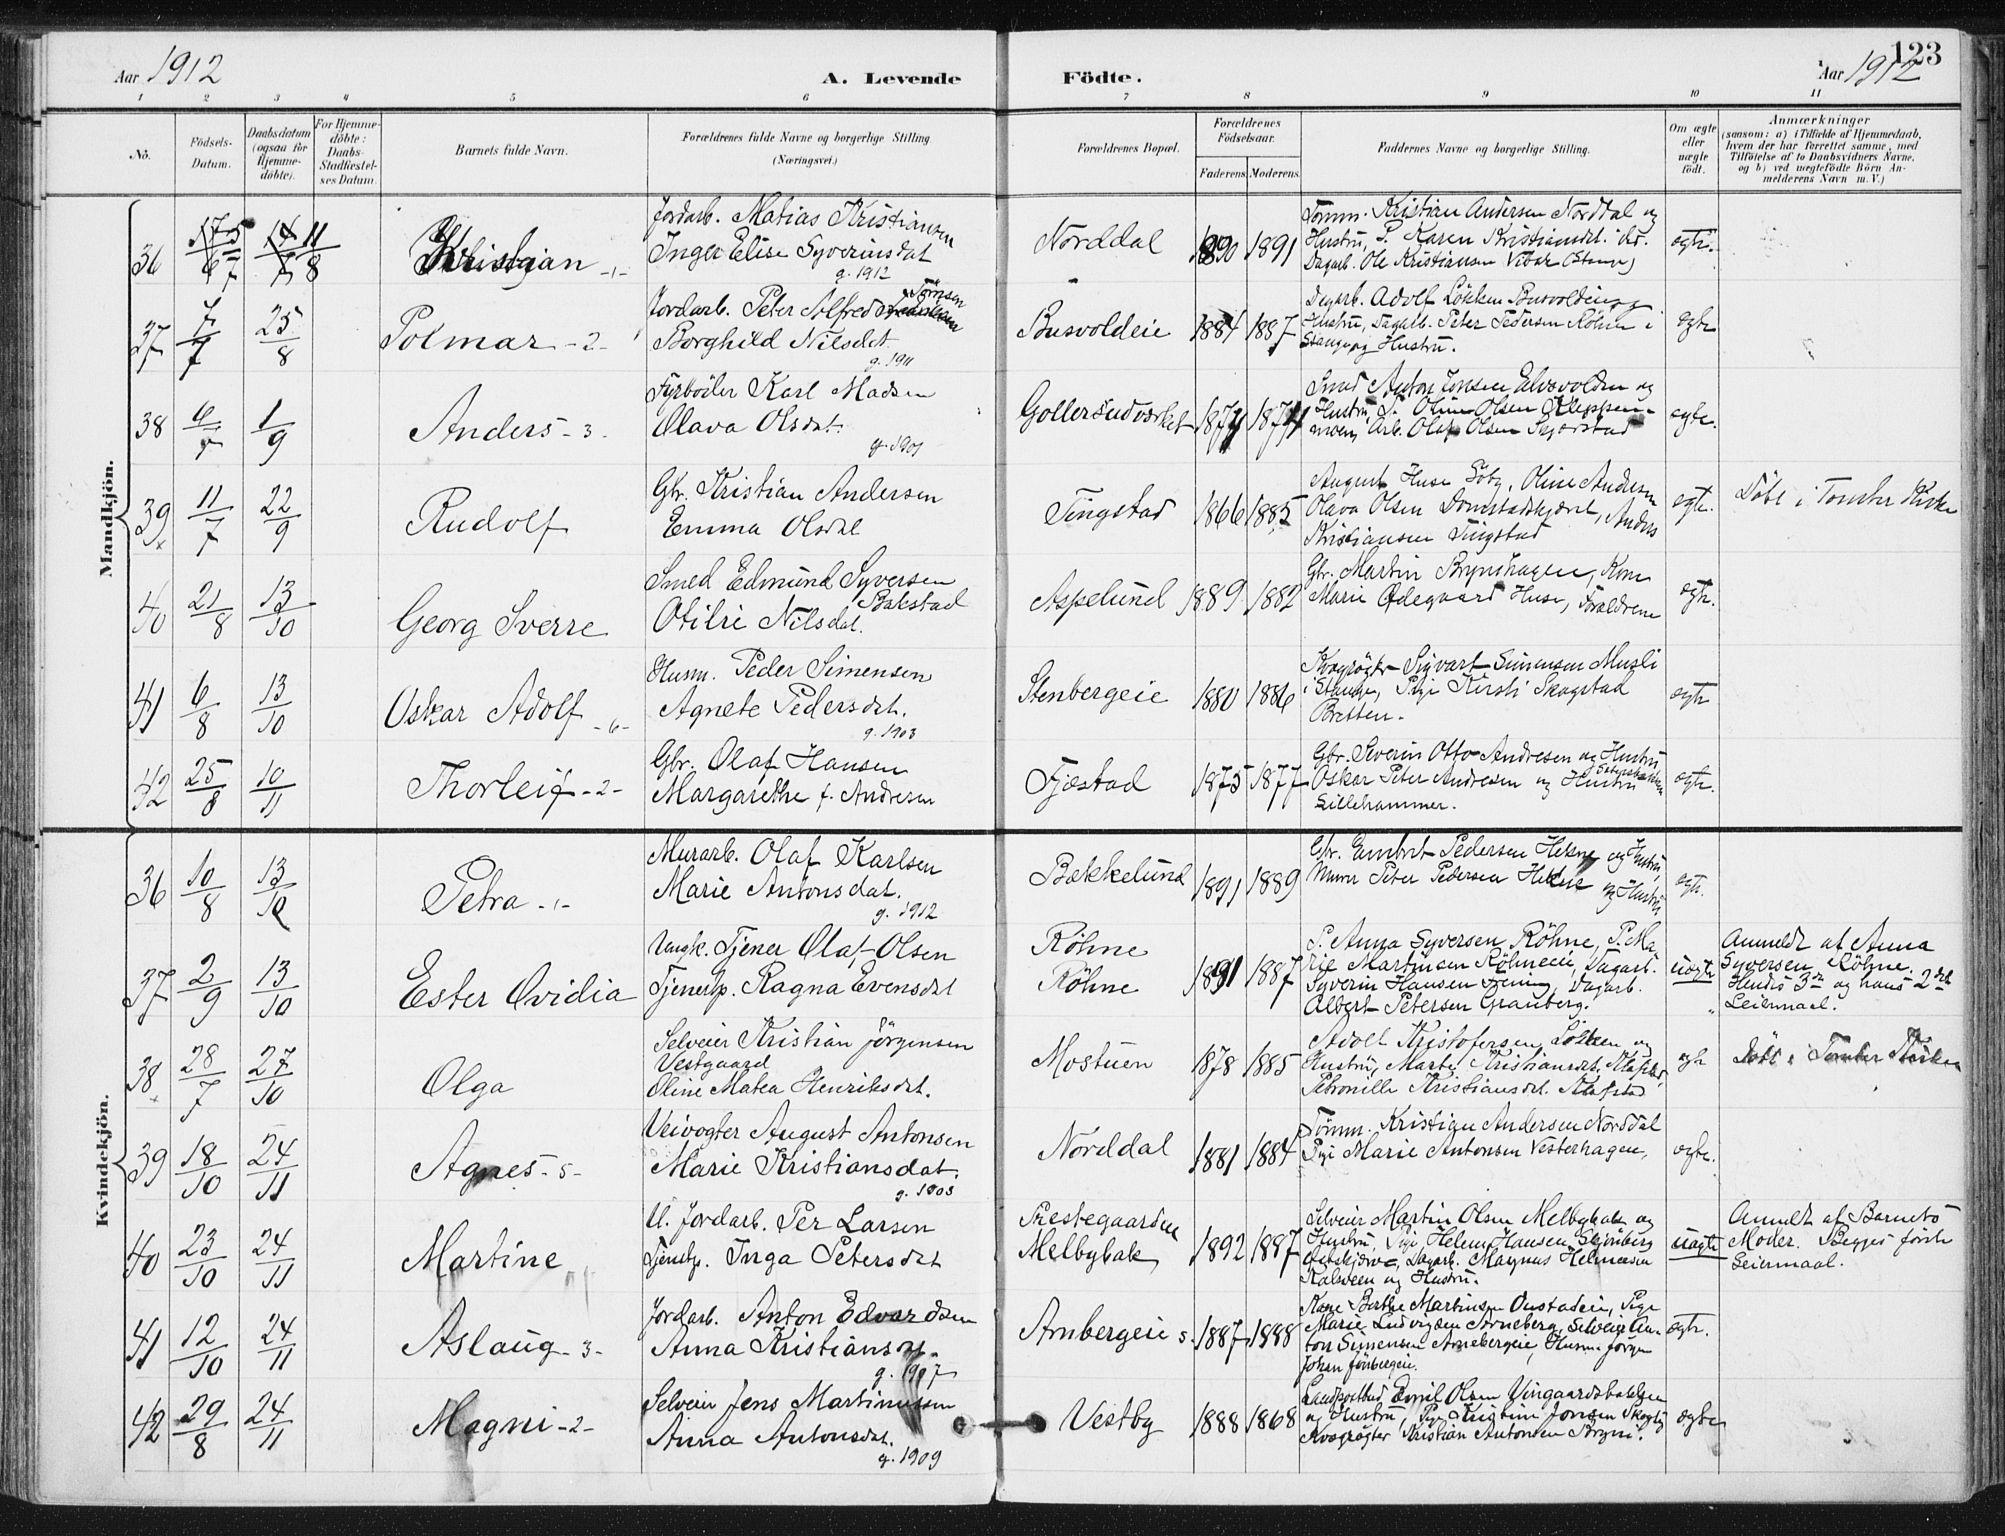 Aar 1912
A. Levende
Födte.
123
Aar 1912
1 2 3 4 5 6 7 8 9 10 11
No.
Födsels-
Datum.
Daabsdatum
(ogsaa for
Hjemme-
döbte).
For Hjemme-
döbte:
Daabs-
Stadfæstel-
ses Datum.
Barnets fulde Navn.
Forældrenes fulde Navne og borgerlige Stilling
(Næringsvei.)
Forældrenes Bopæl.
Forældrenes
Födselsaar.
Faderens. Moderens.
Faddernes Navne og borgerlige Stilling.
Om ægte
eller
uægte
födt.
Anmærkninger
(saasom: a) i Tilfælde af Hjemmedaab,
hvem der har forrettet samme, med
Tilföielse af to Daabsvidners Navne,
og b) ved uægtefödte Börn An-
melderens Navn m. V.)
Mandkjön.
36 11/8 Kristian -1-
Jordarb. Matias Kristiansen
Inger Elise Syverinsdat
g. 1912
Norddal 1890 1891
Tömm. Kristian Andersen Norddal og
Hustru, P. Karen Kristiansdt.
Dagarb. Ole Kristiansen Vibar (Stange)
ægte.
37 7/7 25/8 Polmar -2-
Jordarb. Peter Alfred
Borghild Nilsdt.
g. 1911
Busvoldeie 1884 1887
Dagarb. Adolf Løkken Busvoldeie og
Hustru, Dagarb. Peter Pedersen Röhne i
Stange og Hustru.
ægte
38 6/7 1/9 Anders -3-
Fyrböder Karl Madsen
Olava Olsdat.
g. 1901
1874 1874
Smed Anton Jonsen Elvsvolden og
Hustru, T. Oline Olsen Kleppen-
moen, Arb. Olaf Olsen Skjerstad
ægte.
39 11/7 22/9 Rudolf
Gbr. Kristian Andersen
Emma Olsdat
Tingstad 1866 1885
August Huse Söby, Oline Andersen
Olava Olsen Domstadskjæret, Anders
Kristiansen Tingstad
ægte.
Döbt i Tomter Kirke
40 21/8 13/10 Georg Sverre
Smed Edmund Syversen
Bakstad
Otilie Nilsdat.
Aspelund 1889 1882
Gbr. Martin Brynshagen, Kone
Marie Ødegaard Huse, Forældrene
ægte.
41 6/8 13/10 Oskar Adolf -6-
Husm. Peder Simensen
Agnete Pedersdat.
g. 1903
Stenbergeie 1880 1886
Kvægrögter Sigvart Simensen Musli
i Stange, Pige Kirsti Skogstad
Bretten.
ægte
42 25/8 10/11 Thorleif -2-
Gbr. Olaf Hansen
Margarethe f. Andresen
Fjæstad 1875 1877
Gbr. Severin Otto Andresen og Hustru
Oskar Peter Andresen og Hustru
Lillehammer.
ægte.
Kvindekjön.
36 10/8 13/10 Petra -1-
Murarb. Olaf Karlsen
Marie Antonsdat.
g. 1912
Bækkelund 1891 1889
Gbr. Embret Pedersen Hekne og Hustru,
Murer Peter Pedersen Hekne og Hustru
ægte.
37 2/9 13/10 Ester Ovidia
Ungk. Tjener Olaf Olsen
Tjenerp. Ragna Evensdat
Röhne
Röhne 1891 1887
P. Anna Syversen Röhne, P. Ma-
rie Martinsen Röhneeie, Dagarb.
Syverin Hansen Fjening, Dagarb.
Albert Petersen Granberg.
uægte
Anmeldt af Anna
Syversen Röhne.
Hendes 3de og hans 2det
Leiermaal.
38 28/7 27/10 Olga
Selveier Kristian Jörgensen
Vestgaard
Oline Matea Henriksdt.
Mostuen 1878 1885
Adolf Kristofersen Løkken og
Hustru, Marte Kristiansdt.
Petronille Kristiansdt.
ægte
Döbt i Tomter Kirke
39 18/10 24/11 Agnes -5-
Veivogter August Antonsen
Marie Kristiansdat.
g. 1903
Norddal 1881 1884
Tömm. Kristian Andersen Norddal
Pige Marie Antonsen Vesterhagen,
ægte.
40 23/10 24/11 Martine
U. Jordarb. Per Larsen
Tjenstp. Inga Petersdat
Prestegaarden
Melbybak 1892 1887
Selveier Martin Olsen Melbybak og
Hustru, Pige Helene Hansen
Dagarb. Magnus Helmersen
Kalveen og Hustru.
uægte
Anmeldt af Barnets
Moder. Begges förste
Leiermaal.
41 12/10 24/11 Aslaug -3-
Jordarb. Anton Edvardsen
Anna Kristiansdt.
g. 1907
Arnbergeie s. 1887 1888
Kone Berthe Martinsen Onstadeie, Pige
Marie Ludvigsen Arneberg, Selveier An-
ton Simensen Arnebergeie, Husm. Jörgen
Johan
ægte.
42 29/8 24/11 Magni -2-
Selveier Jens Martinussen
Anna Antonsdat.
g. 1909
Vestby 1888 1868
Landpostbud Emil Olsen Vingaardsbakken
og Hustru, Pige Kristine Jonsen Skogly
Kvægrögter Kristian Antonsen Bryni.
ægte